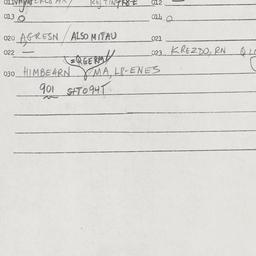 012
013 O 014 O
020 AGRESN / ALSO MITAU 021
022 — 023 KREZDO, RN
=QGERM/
030 HIMBEARN MA, L8-ENES
901 SFTO94T